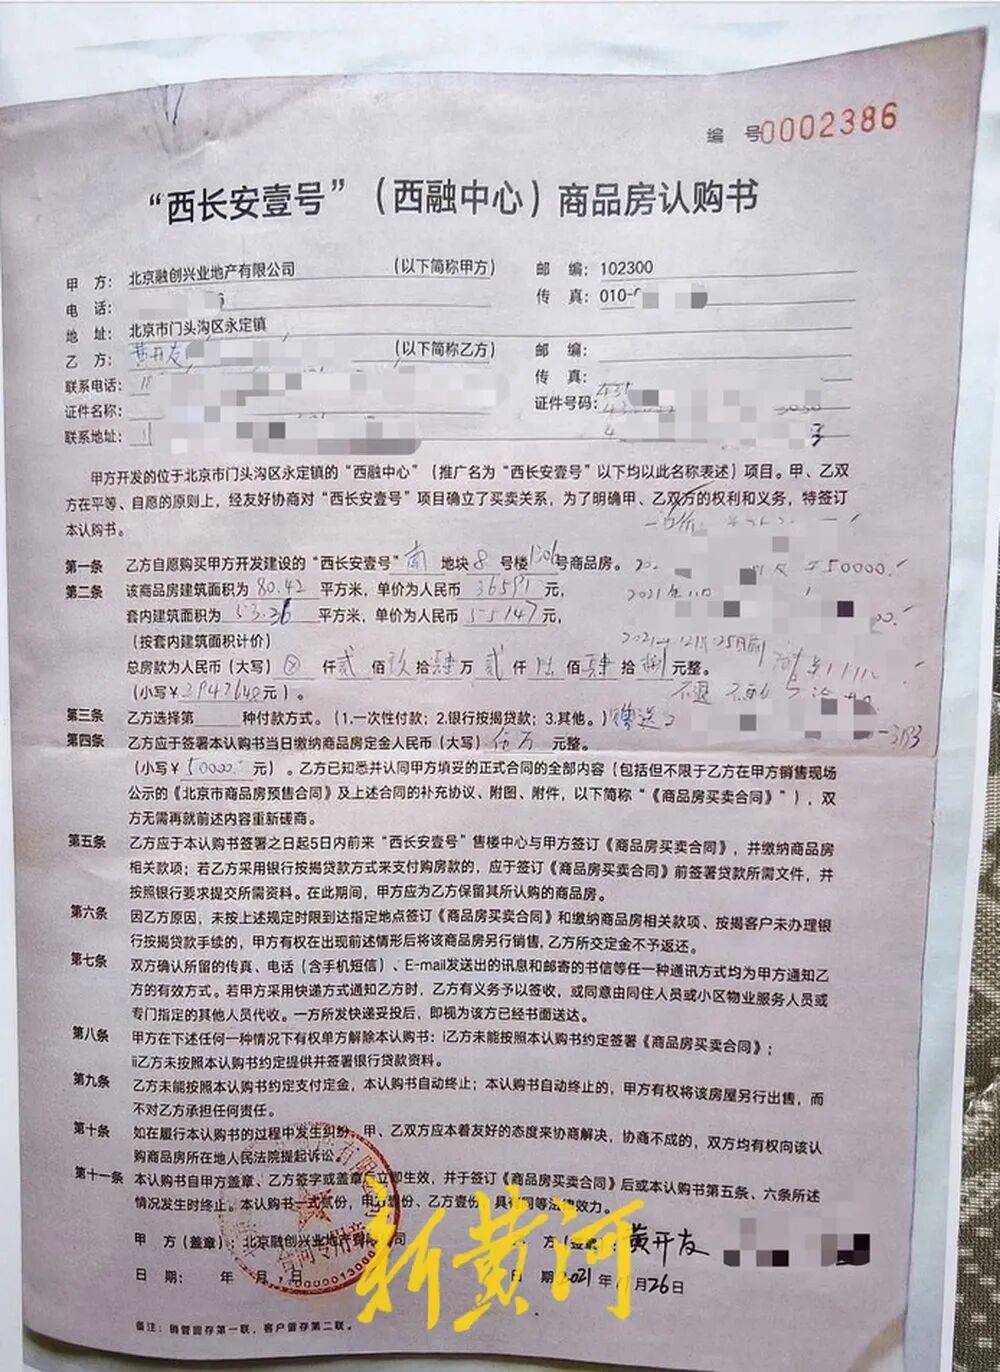 编 号0002386
“西长安壹号”（西融中心）商品房认购书
甲 方： 北京融创兴业地产有限公司 （以下简称甲方） 邮 编：102300
电 话： 传 真：010-
地 址： 北京市门头沟区永定镇
乙 方： 黄开友 （以下简称乙方） 邮 编：
联系电话： 18 传 真：
证件名称： 证件号码：
联系地址：
甲方开发的位于北京市门头沟区永定镇的“西融中心”（推广名为“西长安壹号”以下均以此名称表述）项目。甲、乙双
方在平等、自愿的原则上，经友好协商对“西长安壹号”项目确立了买卖关系，为了明确甲、乙双方的权利和义务，特签订
本认购书。
第一条 乙方自愿购买甲方开发建设的“西长安壹号” 南 地块 8 号楼 1306 号商品房。
¥50000.
第二条 该商品房建筑面积为 80.42 平方米，单价为人民币 36591 元，
2021.11.
套内建筑面积为 53.36 平方米，单价为人民币 55147 元，
（按套内建筑面积计价）
2021年12月25日前
总房款为人民币（大写） ⊗ 仟 贰 佰 玖 拾 肆 万 贰 仟 陆 佰 肆 拾 捌 元整。
（小写¥ 2942648 元）。
不退
第三条 乙方选择第 种付款方式。（1.一次性付款；2.银行按揭贷款；3.其他。）
第四条 乙方应于签署本认购书当日缴纳商品房定金人民币（大写） 伍万 元整。
（小写¥ 50000 元）。乙方已知悉并认同甲方填妥的正式合同的全部内容（包括但不限于乙方在甲方销售现场
公示的《北京市商品房预售合同》及上述合同的补充协议、附图、附件，以下简称“《商品房买卖合同》”），双
方无需再就前述内容重新磋商。
第五条 乙方应于本认购书签署之日起5日内前来“西长安壹号”售楼中心与甲方签订《商品房买卖合同》，并缴纳商品房
相关款项；若乙方采用银行按揭贷款方式来支付购房款的，应于签订《商品房买卖合同》前签署贷款所需文件，并
按照银行要求提交所需资料。在此期间，甲方应为乙方保留其所认购的商品房。
第六条 因乙方原因，未按上述规定时限到达指定地点签订《商品房买卖合同》和缴纳商品房相关款项、按揭客户未办理银
行按揭贷款手续的，甲方有权在出现前述情形后将该商品房另行销售，乙方所交定金不予返还。
第七条 双方确认所留的传真、电话（含手机短信）、E-mail发送出的讯息和邮寄的书信等任一种通讯方式均为甲方通知乙
方的有效方式。若甲方采用快递方式通知乙方时，乙方有义务予以签收，或同意由同住人员或小区物业服务人员或
专门指定的其他人员代收。一方所发快递妥投后，即视为该方已经书面送达。
第八条 甲方在下述任何一种情况下有权单方解除本认购书：i乙方未能按照本认购书约定签署《商品房买卖合同》；
ii乙方未按照本认购书约定提供并签署银行贷款资料。
第九条 乙方未能按照本认购书约定支付定金，本认购书自动终止；本认购书自动终止的，甲方有权将该房屋另行出售，而
不对乙方承担任何责任。
第十条 如在履行本认购书的过程中发生纠纷，甲、乙双方应本着友好的态度来协商解决，协商不成的，双方均有权向该认
购商品房所在地人民法院提起诉讼。
第十一条 本认购书自甲方盖章、乙方签字或盖章后立即生效，并于签订《商品房买卖合同》后或本认购书第五条、六条所述
情况发生时终止。本认购书一式贰份，甲方壹份、乙方壹份，具有同等法律效力。
甲 方（盖章）：北京融创兴业地产有限公司 方（签章）：黄开友
日 期： 年 月 日 日 期：2021年11月26日
新黄河
备注：销管留存第一联，客户留存第二联。